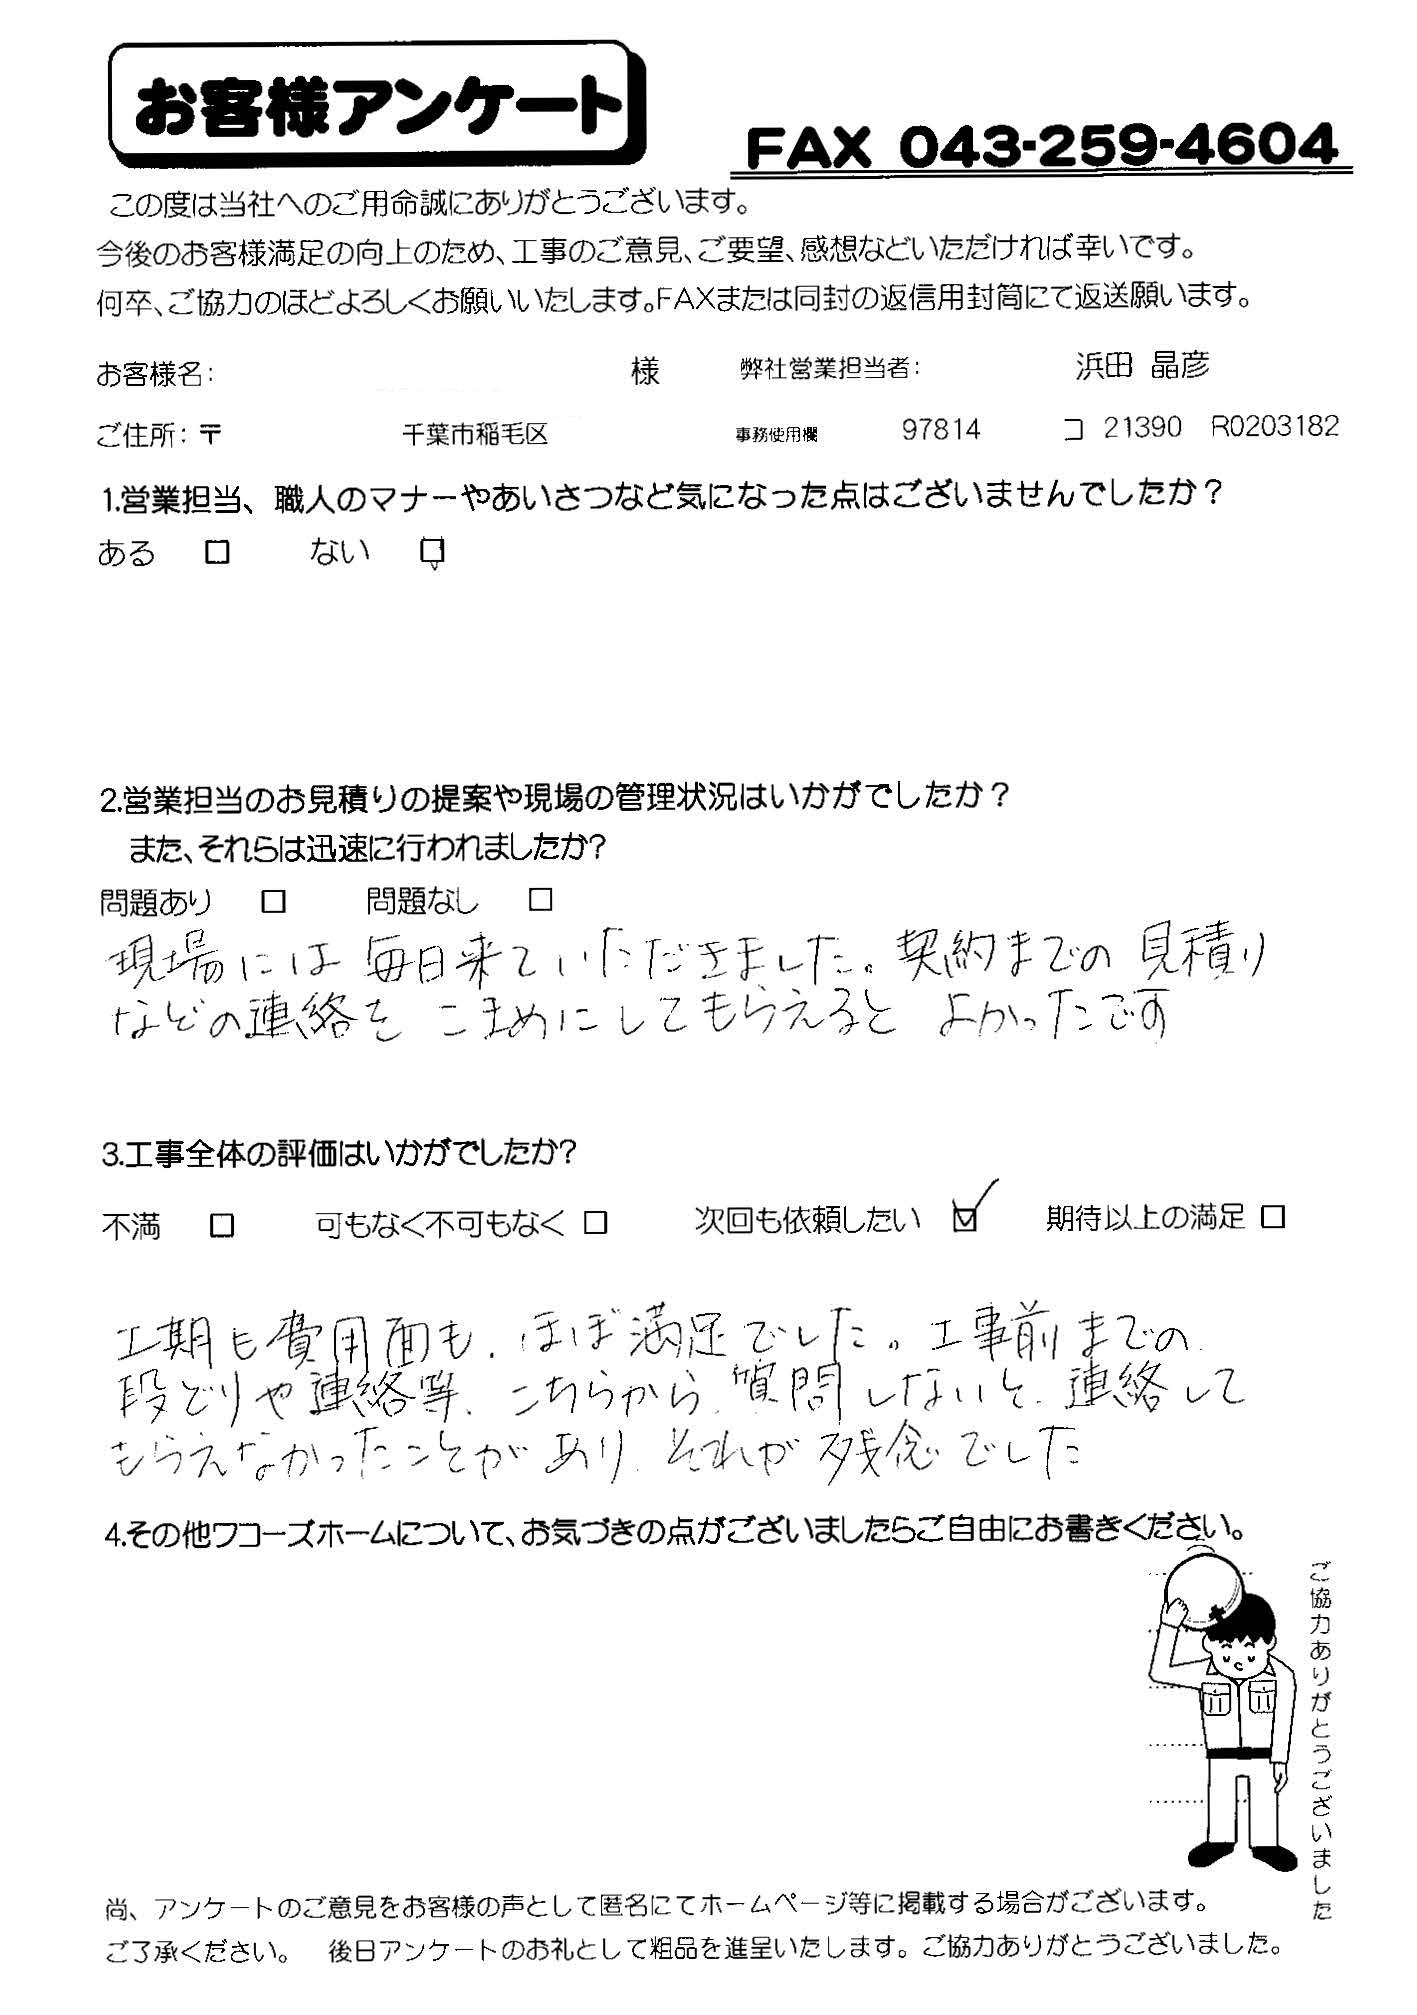 お客様アンケート
FAX 043-259-4604
この度は当社へのご用命誠にありがとうございます。
今後のお客様満足の向上のため、工事のご意見、ご要望、感想などいただければ幸いです。
何卒、ご協力のほどよろしくお願いいたします。FAXまたは同封の返信用封筒にて返送願います。
お客様名: 様 弊社営業担当者: 浜田 晶彦
ご住所: 〒 千葉市稲毛区 事務使用欄 97814 コ 21390 R0203182
1.営業担当、職人のマナーやあいさつなど気になった点はございませんでしたか？
ある □ ない ☑
2.営業担当のお見積りの提案や現場の管理状況はいかがでしたか？
また、それらは迅速に行われましたか?
問題あり □ 問題なし □
現場には毎日来ていただきました。契約までの見積り
などの連絡を こまめにしてもらえると よかったです
3.工事全体の評価はいかがでしたか?
不満 □ 可もなく不可もなく □ 次回も依頼したい ☑ 期待以上の満足 □
工期も費用面も、ほぼ満足でした。工事前までの
段どりや連絡等、こちらから質問しないと、連絡して
もらえなかったことがあり、それが残念でした
4.その他ワコーズホームについて、お気づきの点がございましたらご自由にお書きください。
ご協力ありがとうございました
尚、アンケートのご意見をお客様の声として匿名にてホームページ等に掲載する場合がございます。
ご了承ください。 後日アンケートのお礼として粗品を進呈いたします。ご協力ありがとうございました。